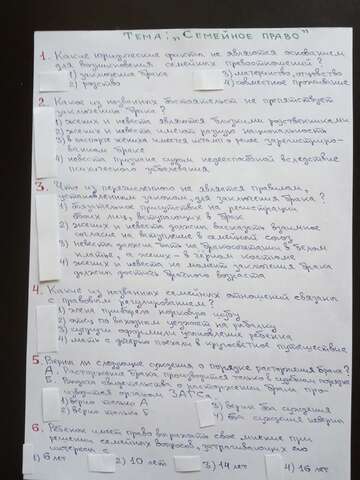 Тема: „Семейное право"
1. Какие юридические факты не являются основанием
для возникновения семейных правоотношений?
1) заключение брака 3) материнство, отцовство
2) родство 4) совместное проживание
2. Какое из названных обстоятельств не препятствует
заключению брака?
1) жених и невеста являются близкими родственниками
2) жених и невеста имеют разную национальность
3) в паспорте жениха имеется штамп о ранее зарегистриро-
ванном браке
4) невеста признана судом недееспособной вследствие
психического заболевания
3. Что из перечисленного не является правилом,
установленным законом, для заключения брака?
1) обязательное присутствие на регистрации
обоих лиц, вступающих в брак
2) жених и невеста должны высказать взаимное
согласие на вступление в семейный союз
3) невеста должна быть на бракосочетании в белом
платье, а жених - в черном костюме
4) жених и невеста на момент заключения брака
должны достичь брачного возраста
4. Какие из названных семейных отношений связаны
с правовым регулированием?
1) жена приобрела норковую шубу
2) отец по выходным уезжает на рыбалку
3) супруги оформили усыновление ребенка
4) мать с дочерью поехали в кружесветное путешествие
5. Верны ли следующие суждения о порядке расторжения брака?
А. Расторжение брака производится только в судебном порядке
Б. Выдача свидетельства о расторжении брака про-
изводится органом ЗАГСа.
1) верно только А 3) верны оба суждения
2) верно только Б 4) оба суждения неверны
6. Ребенок имеет право выражать свое мнение при
решении семейных вопросов, затрагивающих его
интересы с
1) 6 лет 2) 10 лет 3) 14 лет 4) 16 лет